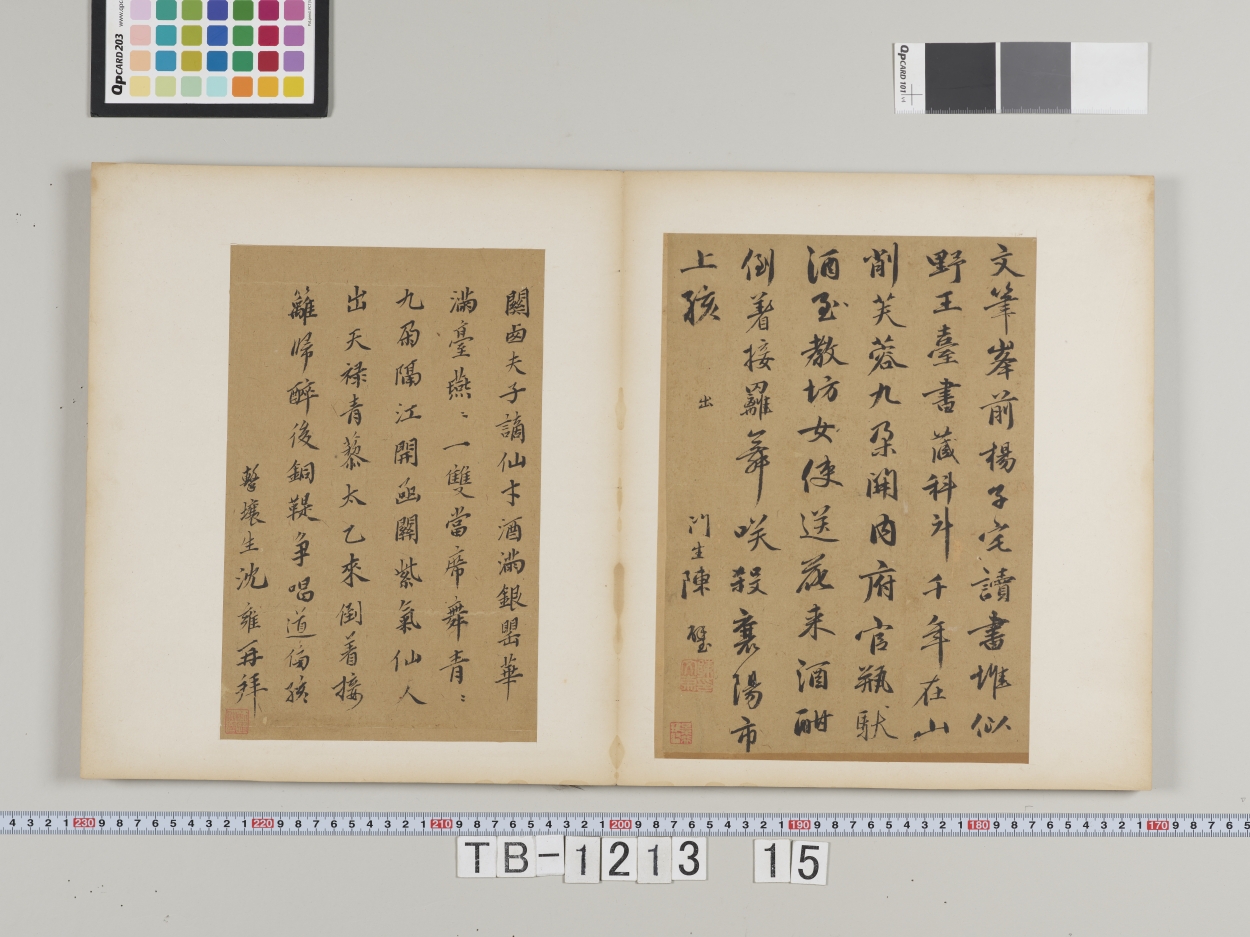 文筆峯前楊子宅讀書堆似
野王臺書藏科斗千年在山
削芙蓉九朶開內府官瓶馱
酒至教坊女使送花来酒酣
倒着接䍦舞咲殺襄陽市
上孩
出
門生陳璧
關西夫子謫仙才酒滿銀罌華
滿臺燕〻一雙當席舞青〻
九朵隔江開函關紫氣仙人
出天禄青藜太乙來倒着接
籬歸醉後銅鞮争唱道傍孩
擊壤生沈雍再拜
QPCARD 203
QPCARD 101 v4
4 3 2 1 230 9 8 7 6 5 4 3 2 1 220 9 8 7 6 5 4 3 2 1 210 9 8 7 6 5 4 3 2 1 200 9 8 7 6 5 4 3 2 1 190 9 8 7 6 5 4 3 2 1 180 9 8 7 6 5 4 3 2 1 170 9 8 7 6 5
TB-1213 15